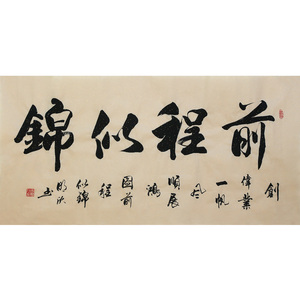 前程似錦
創
偉業
一帆
风
順展
鴻
圖前
程
似錦
书